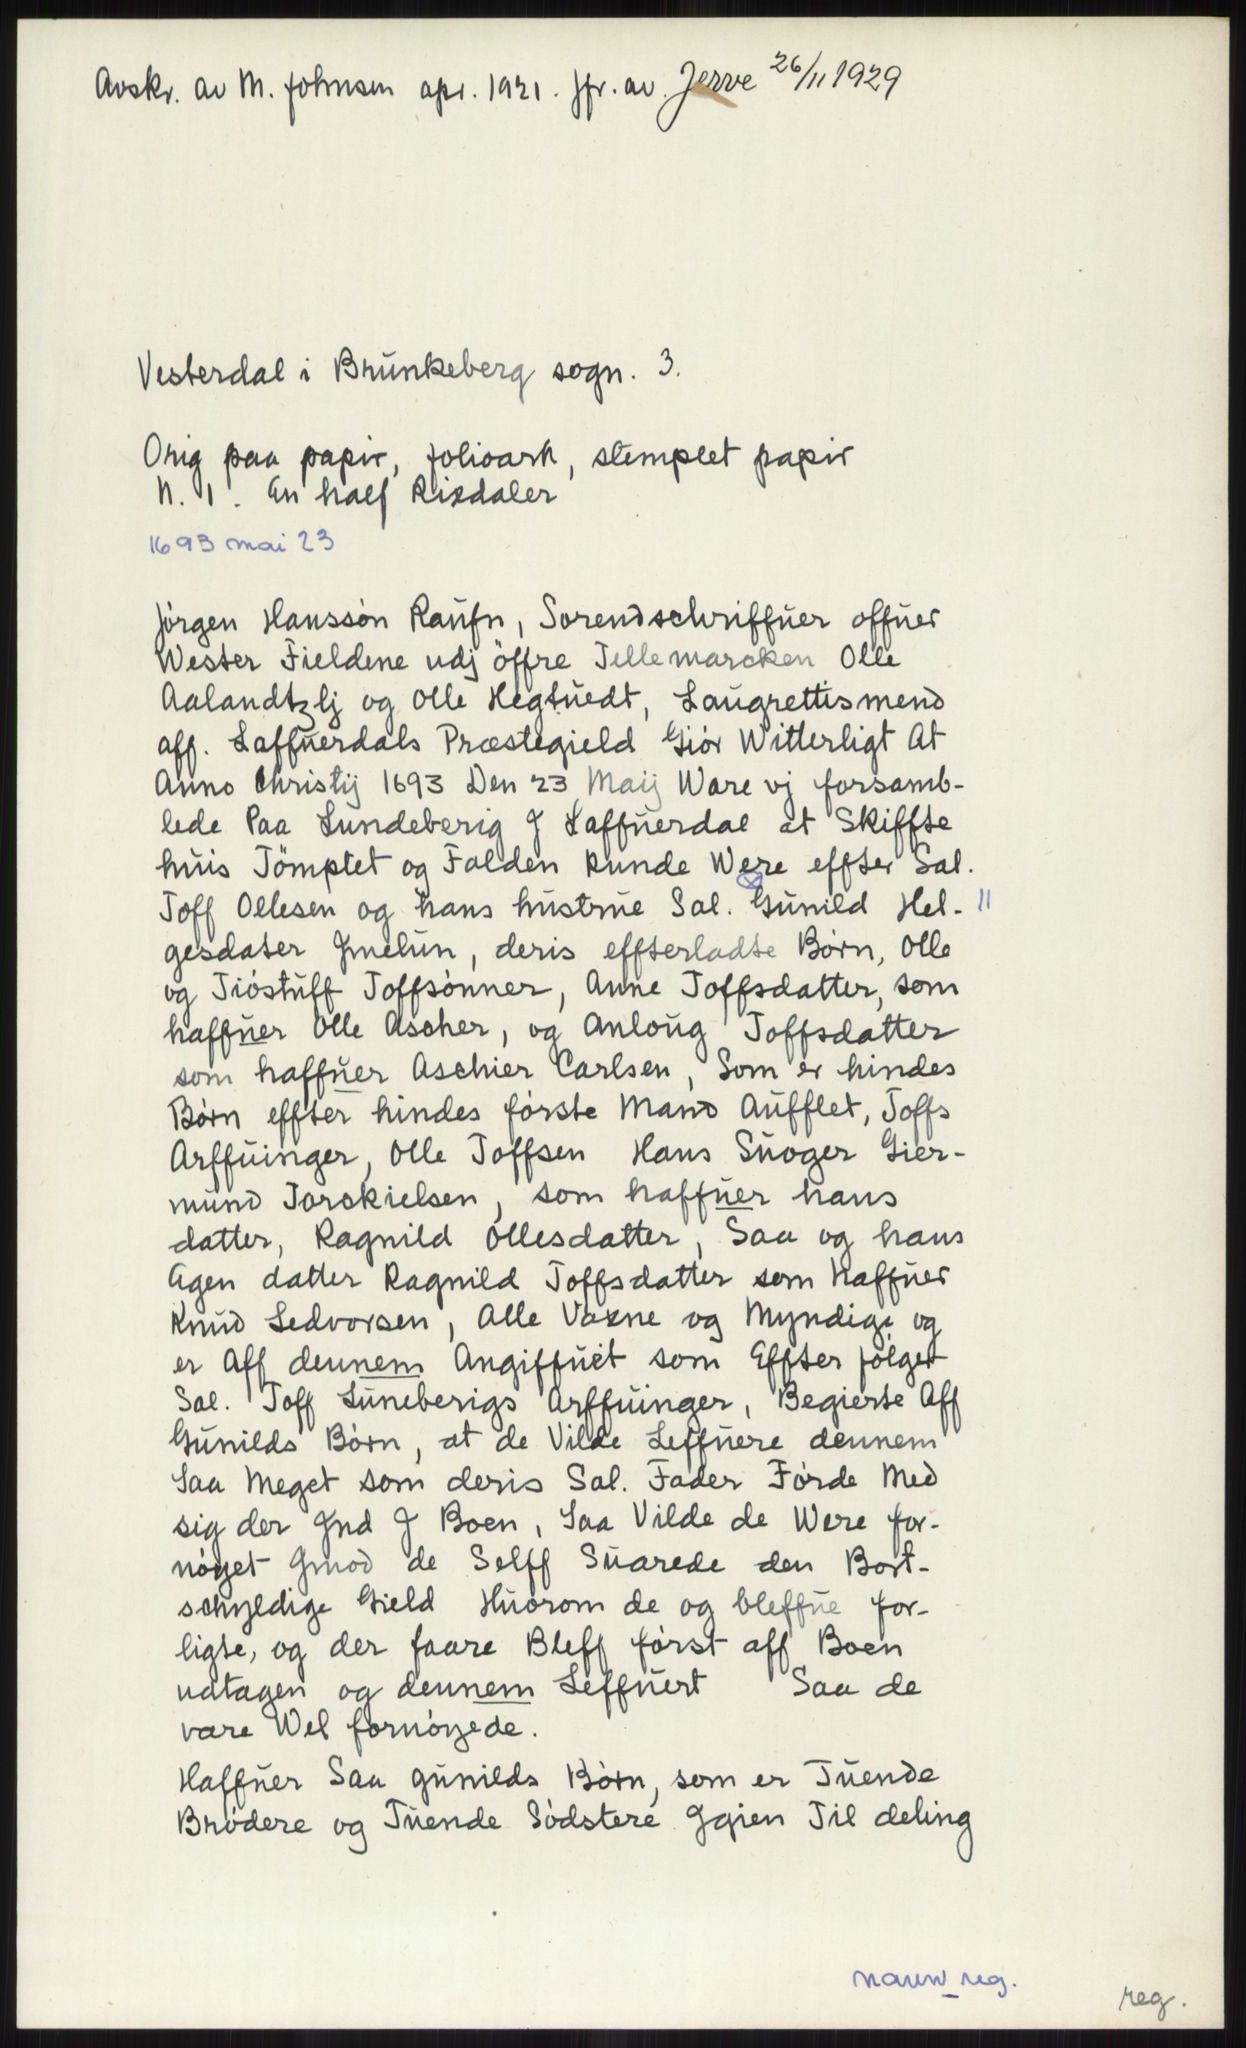 Avskr. av M. Johnsen apr. 1921. Jfr. av. Jerve 26/11 1929
Vesterdal i Brŭnkeberg sogn. 3.
Orig paa papir, folioark, stemplet papir
N. 1. En half Rixdaler
1693 mai 23
Jórgen Hanssón Raŭfn, Sorendschriffŭer offŭer
Wester Fieldene udj öffre Tellemarcken Olle
Aalandtzlj og Olle Hegtŭedt, Laŭgrettismend
aff. Laffŭerdals Præstegield Giór Witterligt At
Anno Christij 1693 Den 23 Maij Ware vj forsamb-
lede Paa Lundeberig J Laffŭerdal at Skiffte
hŭis Tömptet og Falden Kunde Were effter Sal.
Toff Ollesen og hans hŭstrŭe Sal. Gŭnild Hel- 11
gesdater Jmelŭn, deris effterladte Børn, Olle
og Tióstŭff Toffsónner, Anne Toffsdatter, som
haffŭer Olle Ascher, og Anloŭg Toffsdatter
som haffŭer Aschier Carlsen, Som er hindes
Børn effter hindes fórste Mand Aŭfflet, Toffs
Arffŭinger, Olle Toffsen Hans Sŭoger Gier-
mŭnd Torckielsen, som haffŭer hans
datter, Ragnild Ollesdatter, Saa og hans
Egen datter Ragnild Toffsdatter som Haffŭer
Knŭd Ledvorsen, Alle Vaxne og Myndige og
er Aff dennem Angiffŭet som Effter fólger
Sal. Toff Lŭneberigs Arffŭinger, Begierte Aff
Gŭnilds Børn, at de Vilde Leffŭere dennem
Saa Meget som deris Sal. Fader Fórde Med
sig der Jnd J Boen, Saa Vilde de Were for-
nóyet Jmod de Selff Sŭarede den Bort-
schyldige Gield Hŭorom de og bleffŭe for-
ligte, og der faare Bleff fórst aff Boen
udtagen og dennem Leffŭert Saa de
vare Wel fornóyede.
Haffŭer Saa gŭnilds Børn, som er Tŭende
Bródere og Tŭende Sódstere Jgien Til deling
navn_reg.
reg.